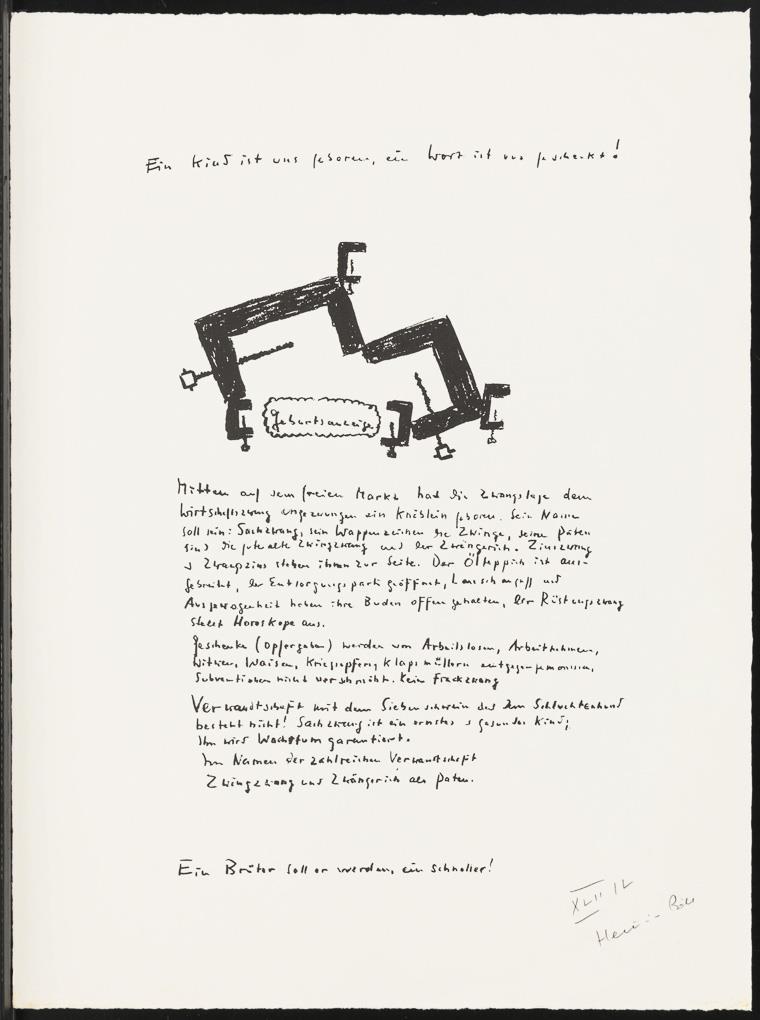 Ein Kind ist uns geboren, ein Wort ist uns geschenkt!
Geburtsanzeige
Mitten auf dem freien Markt hat die Zwangslage dem
Wirtschaftszwang ungezwungen ein Knäblein geboren. Sein Name
soll sein: Sachzwang, sein Wappenzeichen die Zwinge, seine Paten
sind die gute alte Zwingzwang und der Zwängerich. Zinszwang
u Zwangzins stehen ihnen zur Seite. Der Ölteppich ist aus-
gebreitet, der Entsorgungspark geöffnet, Lauschangriff und
Ausgewogenheit haben ihre Buden offen gehalten, der Rüstungszwang
stellt Horoskope aus.
Geschenke (Opfergaben) werden von Arbeitslosen, Arbeitnehmern,
Witwen, Waisen, Kriegsopfern, Klapsmüllern entgegengenommen,
Subventionen nicht verschmäht. Kein Frackzwang
Verwandtschaft mit dem Siebenschwein und dem Schluchtenhund
besteht nicht! Sachzwang ist ein ernstes u gesundes Kind;
Ihm wird Wachstum garantiert.
Im Namen der zahlreichen Verwandtschaft
Zwingzwang und Zwängerich als Paten.
Ein Brüter soll er werden, ein schneller!
XLII/L
Heinrich Böll